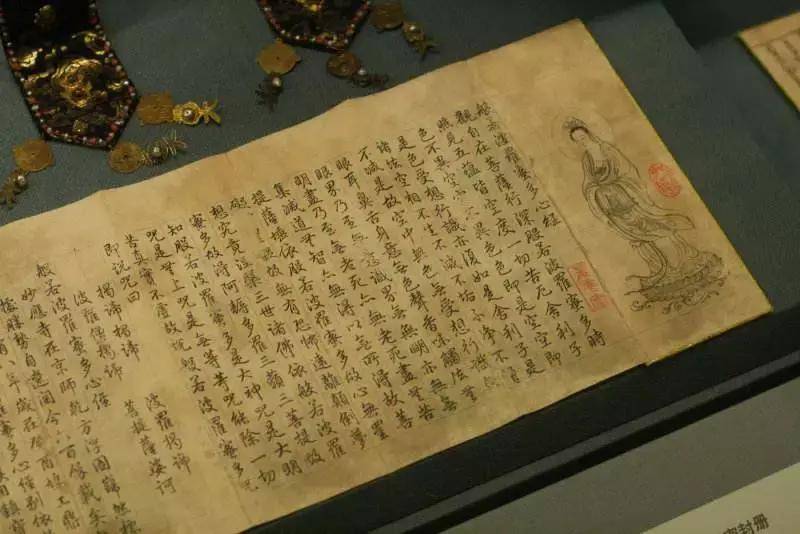 般若波羅蜜多心經
觀自在菩薩行深般若波羅蜜多時
照見五蘊皆空度一切苦厄舍利子
色不異空空不異色色即是空空即
是色受想行識亦復如是舍利子是
諸法空相不生不滅不垢不淨不增
不減是故空中無色無受想行識無
眼耳鼻舌身意無色聲香味觸法無
眼界乃至無意識界無無明亦無無
明盡乃至無老死亦無老死盡無苦
集滅道無智亦無得以無所得故菩
提薩埵依般若波羅蜜多故心無罣
礙無罣礙故無有恐怖遠離顛倒夢
想究竟涅槃三世諸佛依般若波羅
蜜多故得阿耨多羅三藐三菩提故
知般若波羅蜜多是大神咒是大明
咒是無上咒是無等等咒能除一切
苦真實不虛故說般若波羅蜜多咒
即說咒曰
揭諦揭諦 波羅揭諦
波羅僧揭諦 菩提薩婆訶
般若波羅蜜多心經
妙應寺在京師乾方浮圖巋然標
勝勢自遼迄今六百餘載矣
歲在癸酉
封册